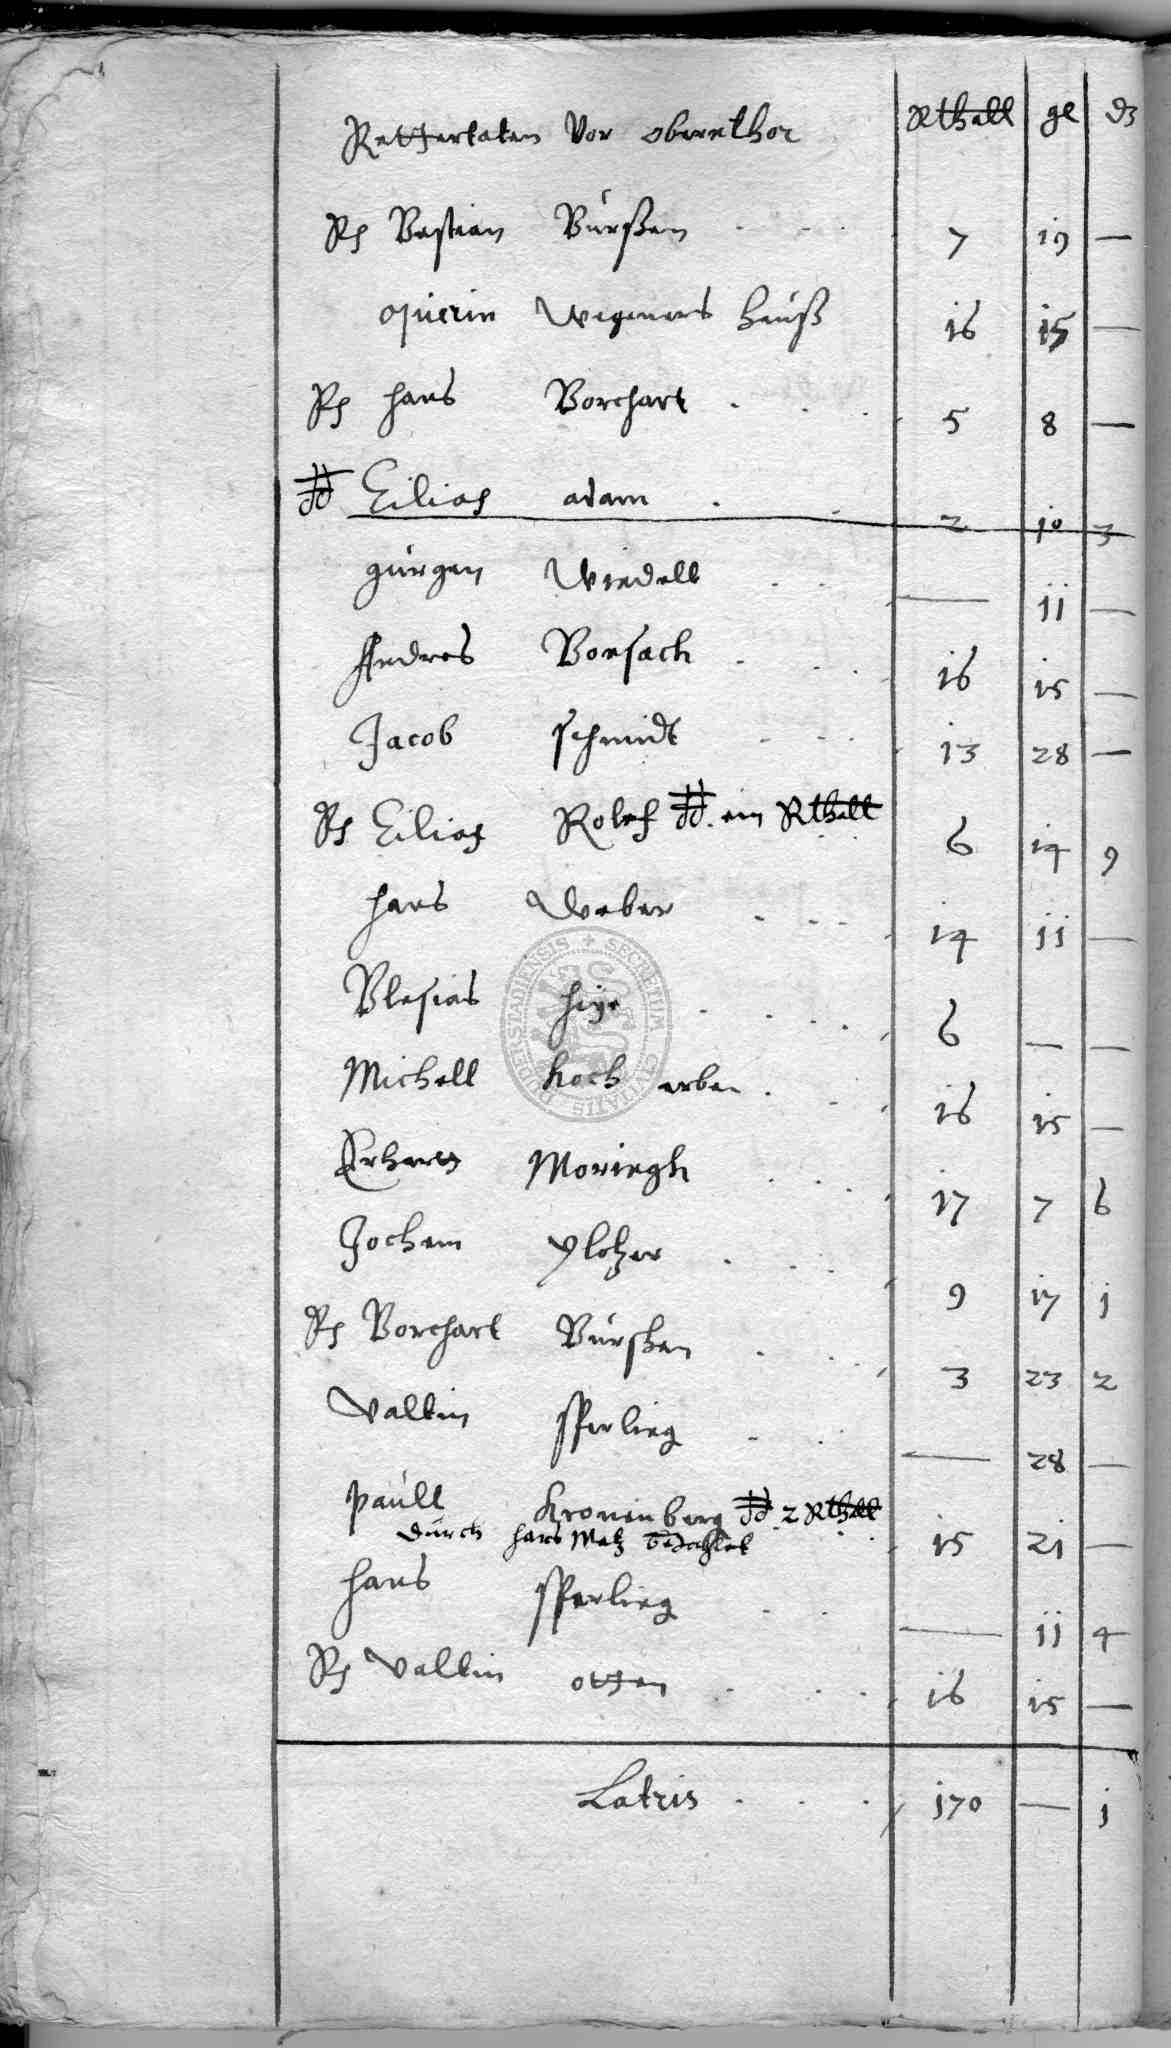 Rettertaten Vor oberethor Rthall gl d3
Rs Bastian Bürßen 7 19 —
Quirin Wegeners Hauß 16 15 —
Rs Hans Borchart 5 8 —
dd Eilias adam 2 10 3
gürgen Wiedell — 11 —
Andres Bonsach 16 15 —
Jacob schmidt 13 28 —
Rs Eilias Rolef dd. ein Rthall 6 14 9
Hans Weber 14 11 —
Blasius Heye 6 — —
Michell Koch erben 16 15 —
Erhartt Moriegh 17 7 6
Jochem Plotzer 9 17 1
Rs Borchart Bürschen 3 23 2
Valtin sperlieg — 28 —
Paull Kronenberg dd. 2 Rthall 15 21 —
dürch Hans Metz bezahlet
Hans sperlieg — 11 4
Rs Valtin otten 16 15 —
Latris 170 — 1
SECRETUM CIVITATIS DUDERSTADIENSIS